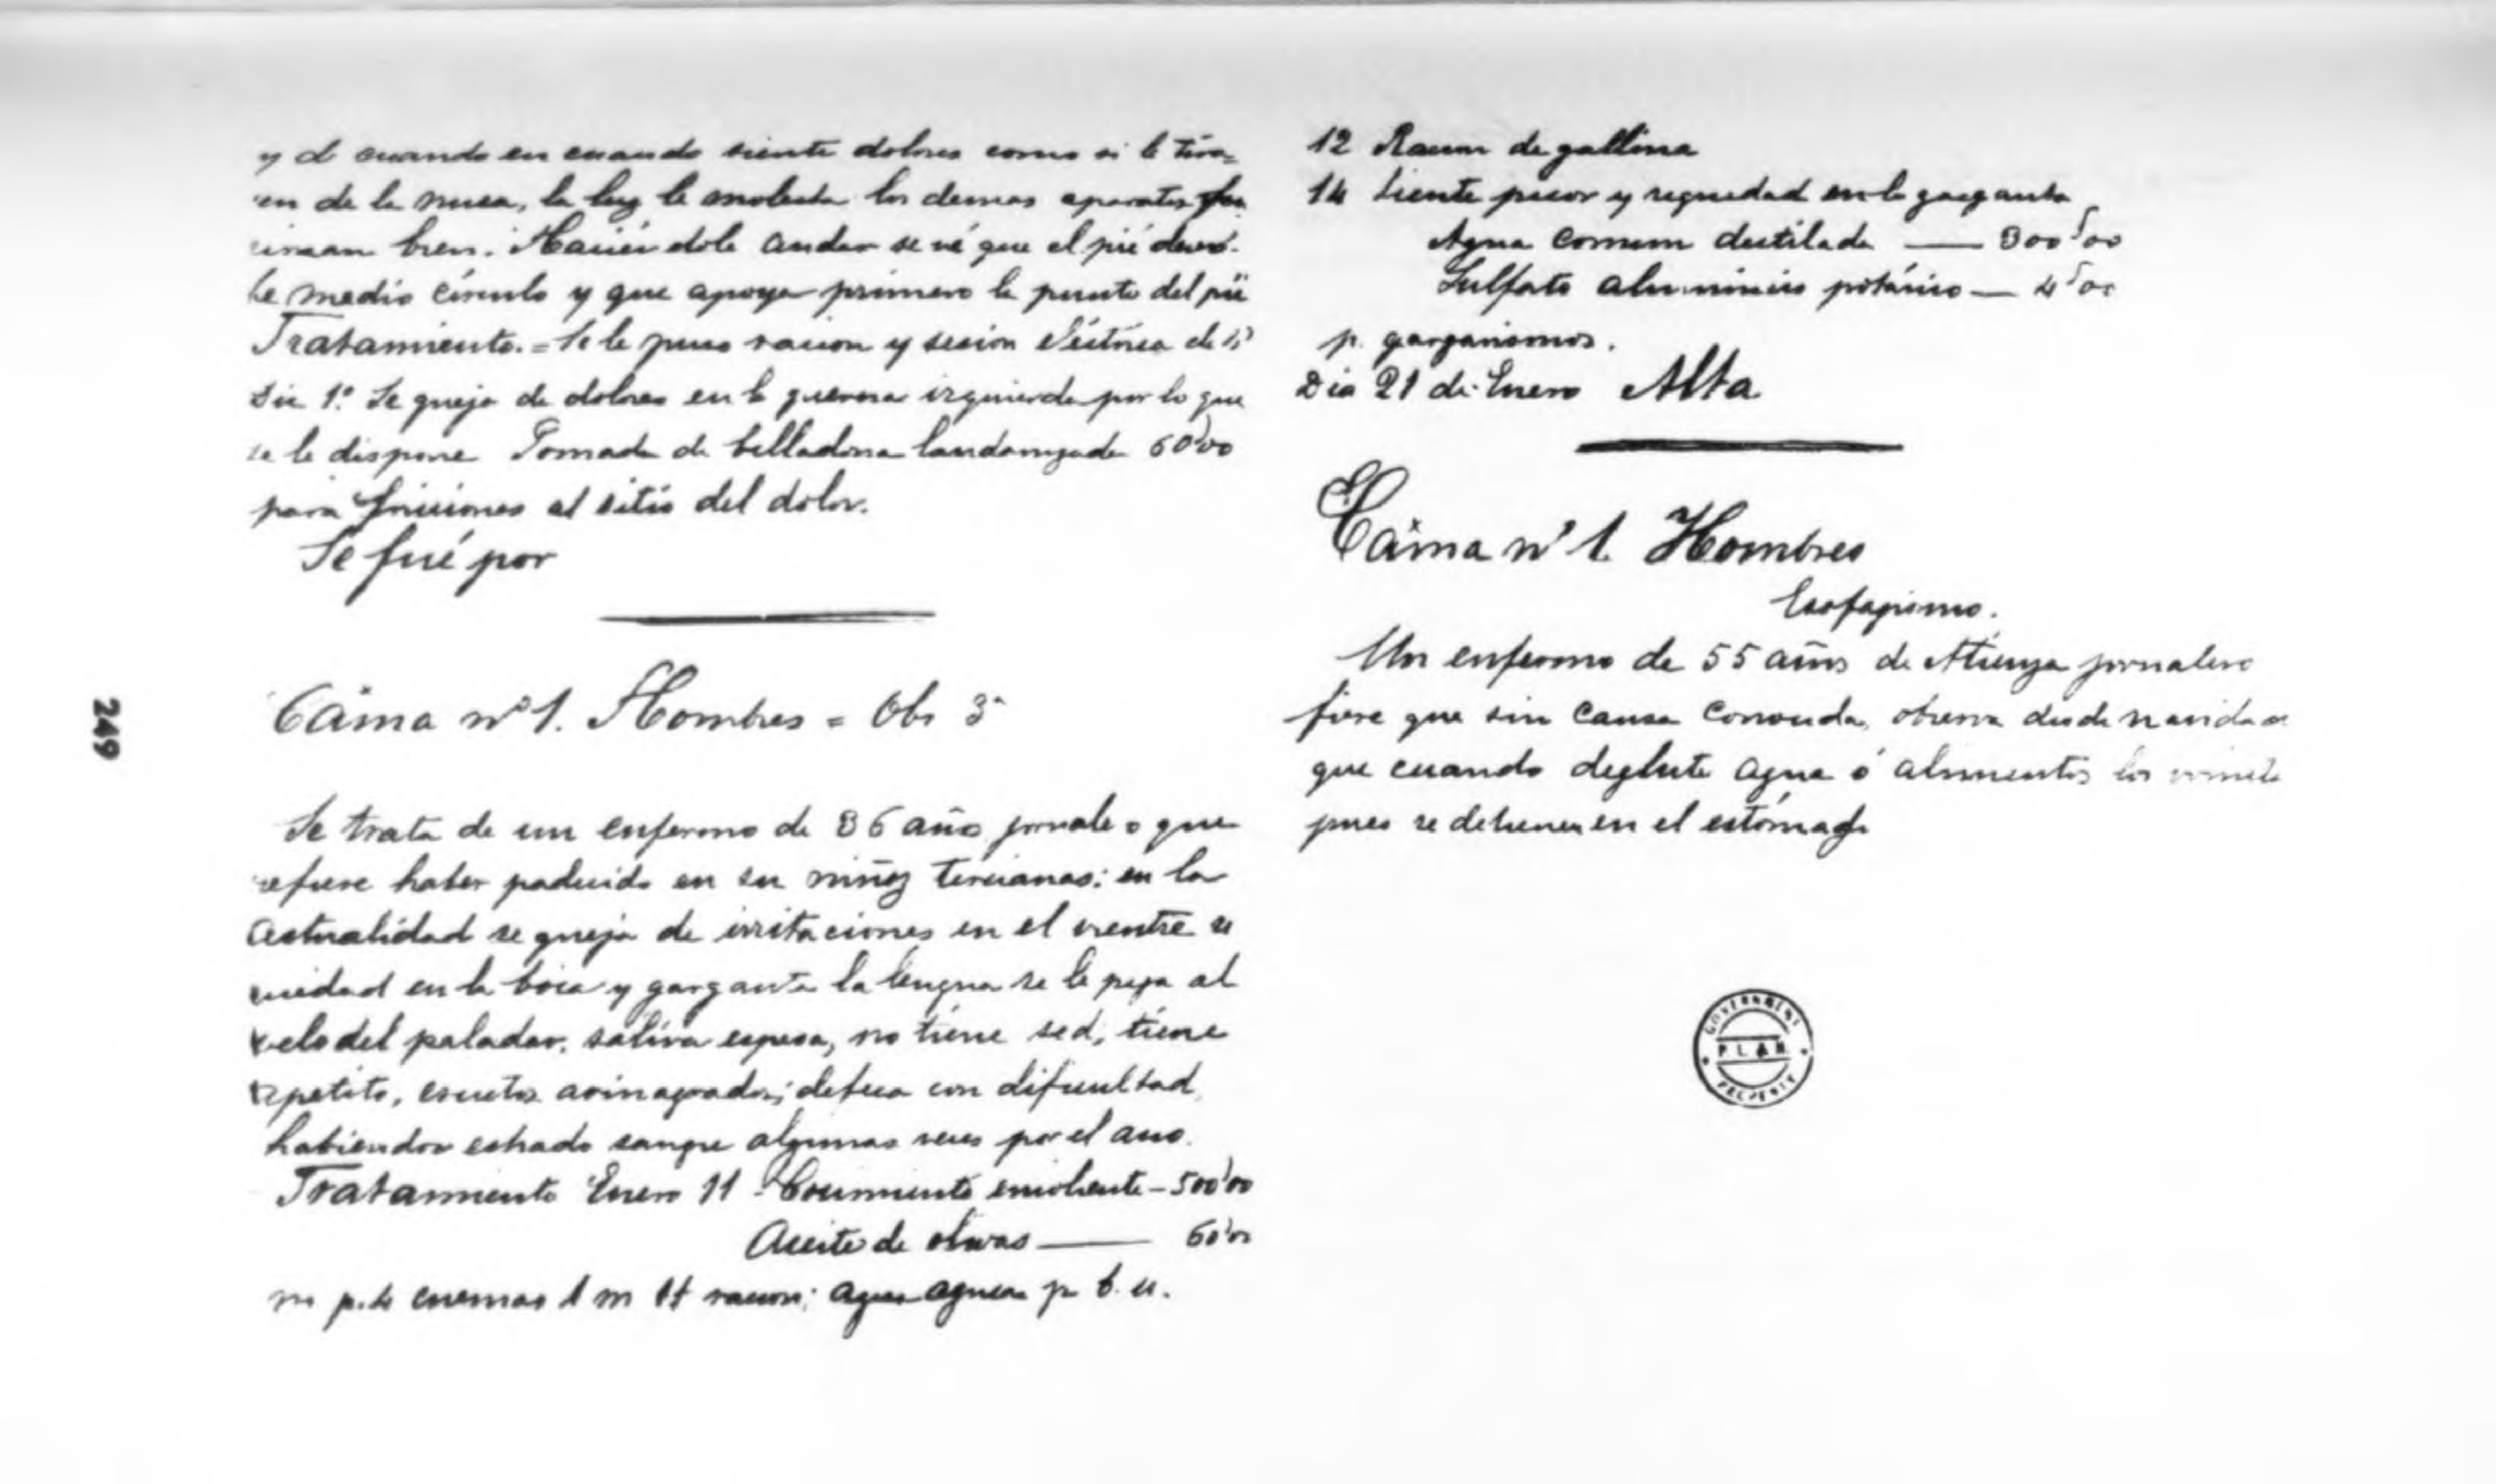 y d cuando en cuando siente dolores como si le tira=
en de la nuca, la luz le molesta los demas aparatos fun
cionan bien. Haciendole andar se vé que el pié descri-
be medio círculo y que apoya primero la punta del pié
Tratamiento.= Se le puso racion y sesion eléctrica de
Dia 1º. Se queja de dolores en la pierna izquierda por lo que
se le dispone Pomada de belladona laudanizada 60'00
para fricciones al sitio del dolor.
Se fué por
Cama nº 1. Hombres = Obs 3ª
Se trata de un enfermo de 36 año jornale o que
refiere haber padecido en su niñez tercianas: en la
actualidad se queja de irritaciones en el vientre se
quedad en la boca y garganta la lengua se le pega al
velo del paladar, saliva espesa, no tiene sed, tiene
apetito, eructos avinagrados; defeca con dificultad
habiendo echado sangre algunas veces por el ano.
Tratamiento Enero 11 - Cocimiento emoliente - 500'00
Aceite de olivas — 60'00
m p. enemas 1 m 1 t racion; agua p b. u.
12 Racion de gallina
14 Siente picor y sequedad en la garganta
Agua comun destilada — 300'00
Sulfato aluminico potásico — 4'00
p. gargarismos.
Dia 21 de Enero Alta
Cama nº 1. Hombres
Esofagismo.
Un enfermo de 55 años de Atienza jornalero
fiere que sin causa conocida, observa desde navidad
que cuando deglute agua ó alimentos los vomita
pues se detienen en el estómago
249
GOVERNMENT
PLAN